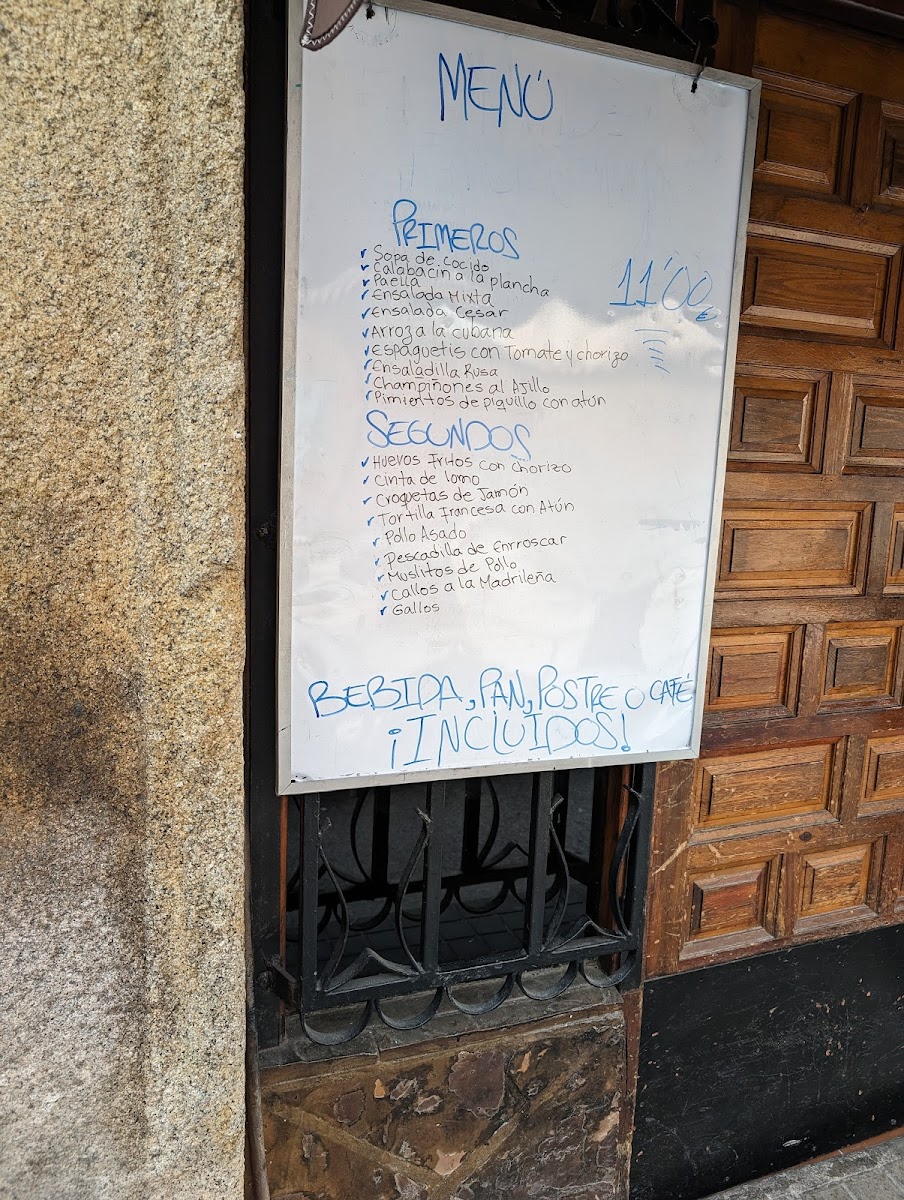 MENÚ
PRIMEROS
Sopa de cocido
Calabacin a la plancha
Paella
Ensalada Mixta
Ensalada Cesar
11'00€
Arroz a la cubana
Espaguetis con Tomate y chorizo
Ensaladilla Rusa
Champiñones al Ajillo
Pimientos de piquillo con atún
SEGUNDOS
Huevos Fritos con chorizo
Cinta de lomo
Croquetas de Jamón
Tortilla francesa con Atún
Pollo Asado
Pescadilla de Enrroscar
Muslitos de Pollo
Callos a la Madrileña
Gallos
BEBIDA, PAN, POSTRE O CAFÉ
¡INCLUIDOS!